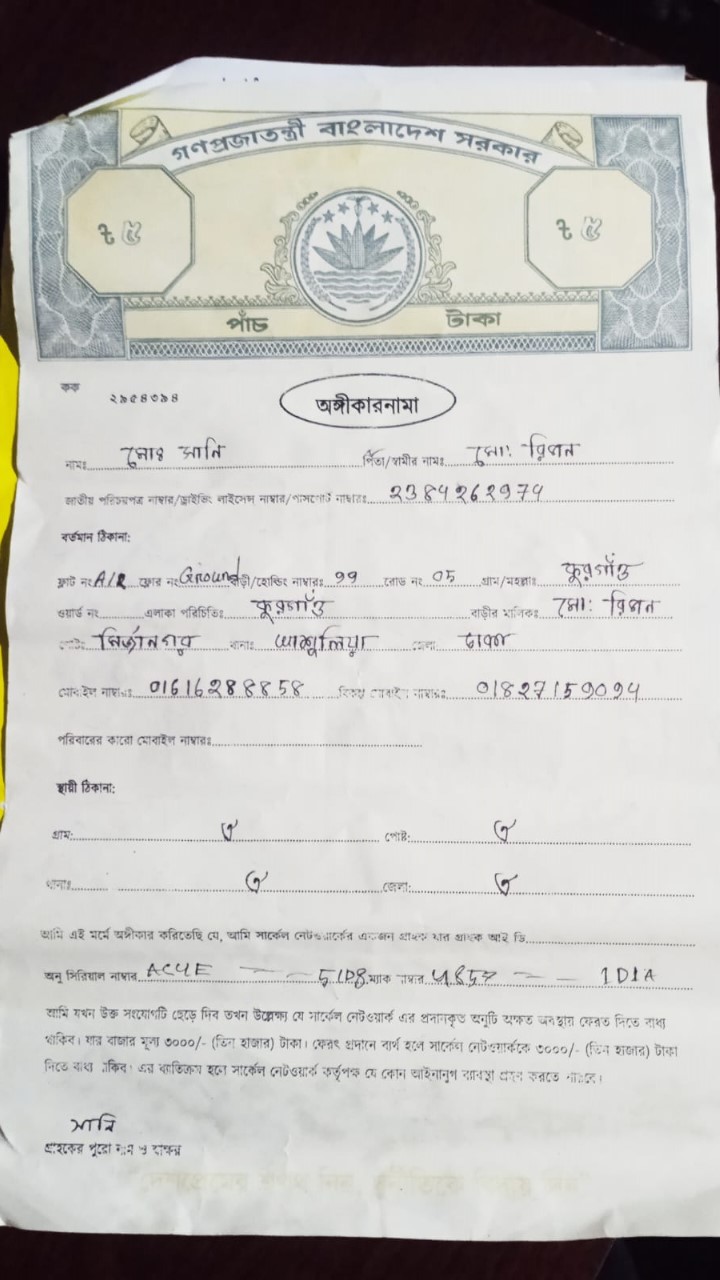 গণপ্রজাতন্ত্রী বাংলাদেশ সরকার
৳ ৫ ৳ ৫
পাঁচ টাকা
কক ২৯৫৪৩৯৪
অঙ্গীকারনামা
নামঃ মোঃ সানি পিতা/স্বামীর নামঃ মো: রিপন
জাতীয় পরিচয়পত্র নাম্বার/ড্রাইভিং লাইসেন্স নাম্বার/পাসপোর্ট নাম্বারঃ 2384262974
বর্তমান ঠিকানা:
ফ্লাট নং A/2 ফ্লোর নং Ground বাড়ী/হোল্ডিং নাম্বারঃ 99 রোড নং 05 গ্রাম/মহল্লাঃ
ওয়ার্ড নং এলাকা পরিচিতিঃ বাড়ীর মালিকঃ মো: রিপন
মির্জানগর থানাঃ আশুলিয়া জেলা ঢাকা
মোবাইল নাম্বারঃ 01616288858 বিকল্প মোবাইল নাম্বারঃ 01827159094
পরিবারের কারো মোবাইল নাম্বারঃ
স্থায়ী ঠিকানা:
গ্রাম: ঐ পোষ্ট: ঐ
থানাঃ ঐ জেলা: ঐ
আমি এই মর্মে অঙ্গীকার করিতেছি যে, আমি সার্কেল নেটওয়ার্কের একজন গ্রাহক যার গ্রাহক আই ডি
অনু সিরিয়াল নাম্বার AC4E — — 51D8 ম্যাক নাম্বার 4857 — — 1D1A
আমি যখন উক্ত সংযোগটি ছেড়ে দিব তখন উল্লেক্ষ্য যে সার্কেল নেটওয়ার্ক এর প্রদানকৃত অনুটি অক্ষত অবস্থায় ফেরত দিতে বাধ্য
থাকিব। যার বাজার মূল্য ৩০০০/- (তিন হাজার) টাকা। ফেরৎ প্রদানে ব্যর্থ হলে সার্কেল নেটওয়ার্ককে ৩০০০/- (তিন হাজার) টাকা
দিতে বাধ্য থাকিব। এর ব্যতিক্রম হলে সার্কেল নেটওয়ার্ক কর্তৃপক্ষ যে কোন আইনানুগ ব্যবস্থা গ্রহন করতে পারবে।
সানি
গ্রাহকের পুরো নাম ও স্বাক্ষর